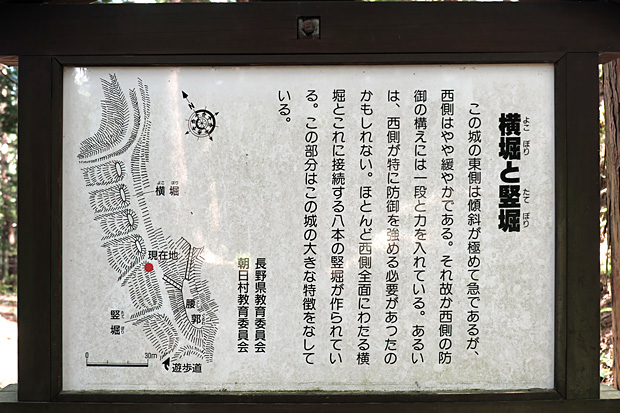 横堀と竪堀
よこぼり
たてぼり
この城の東側は傾斜が極めて急であるが、
西側はやや緩やかである。それ故か西側の防
御の構えには一段と力を入れている。あるい
は、西側が特に防御を強める必要があつたの
かもしれない。ほとんど西側全面にわたる横
堀とこれに接続する八本の竪堀が作られてい
る。この部分はこの城の大きな特徴をなして
いる。
長野県教育委員会
朝日村教育委員会
よこぼり
横堀
現在地
腰郭
たてぼり
竪堀
0 30m
遊歩道